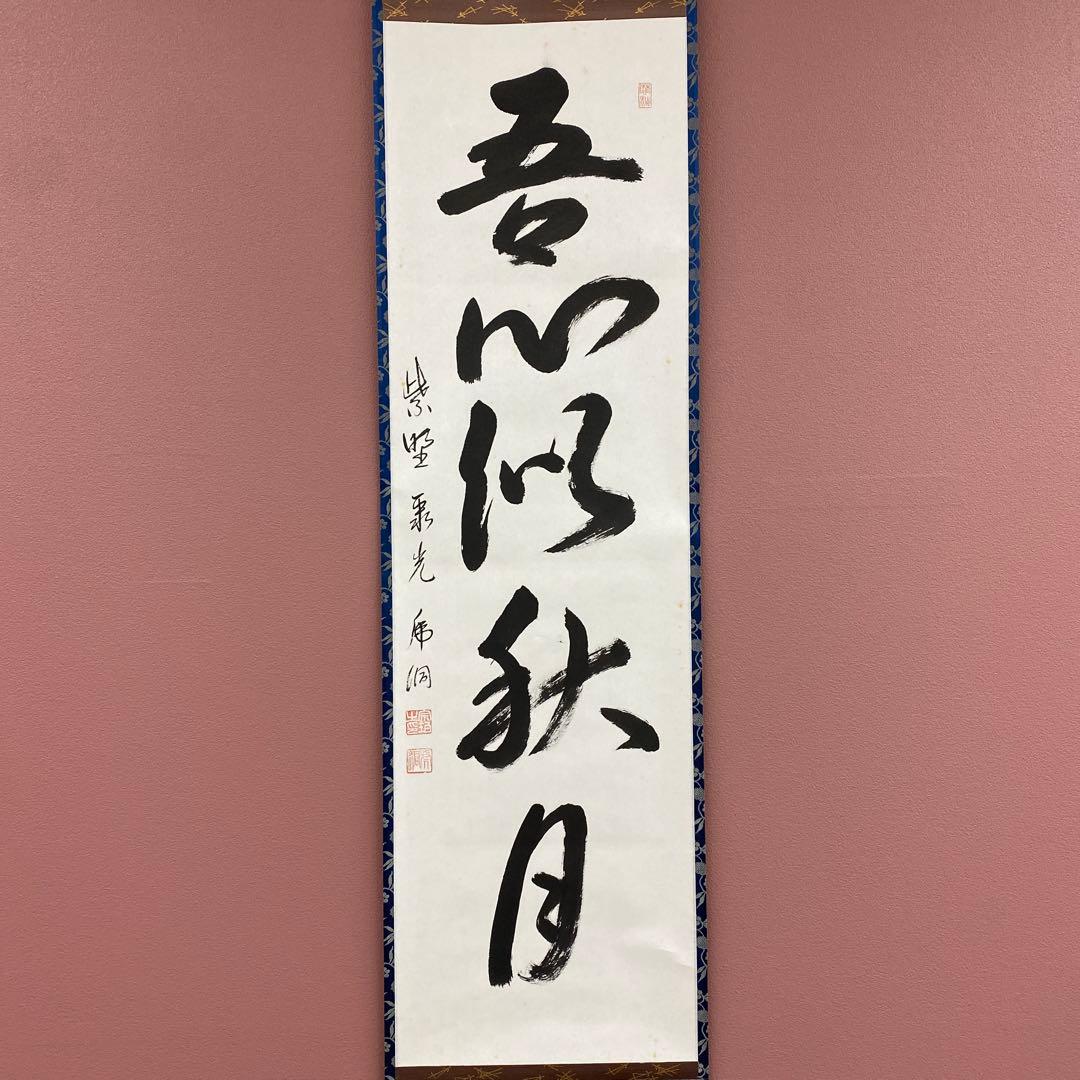 吾心似秋月
紫野 聚光 虎洞